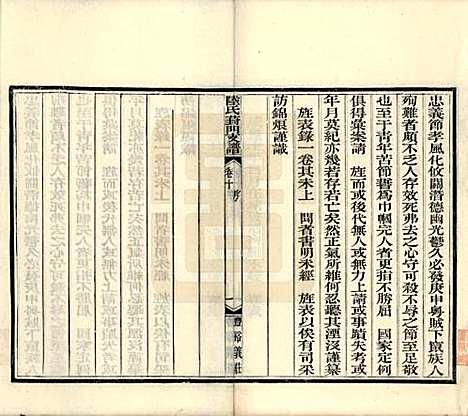 忠義節孝風化攸關潛德幽光鬱久必發庚申粵賊下竄族人
殉難者頗不乏人存效死弗去之心守可殺不辱之節至
也至于青年苦節譽爲巾幗完人者更指不勝屈　國家定例
俱得彙案請　旌而或後代無人或無力上請或事蹟失考或
年月莫紀亦幾若存若亡矣然正氣所維何忍聽其湮沒謹纂
旌表錄一卷其未上　聞者書明未經　旌表以俟有司采
訪錦烺謹識
陸氏葑門支譜
卷十
一
豐裕義莊